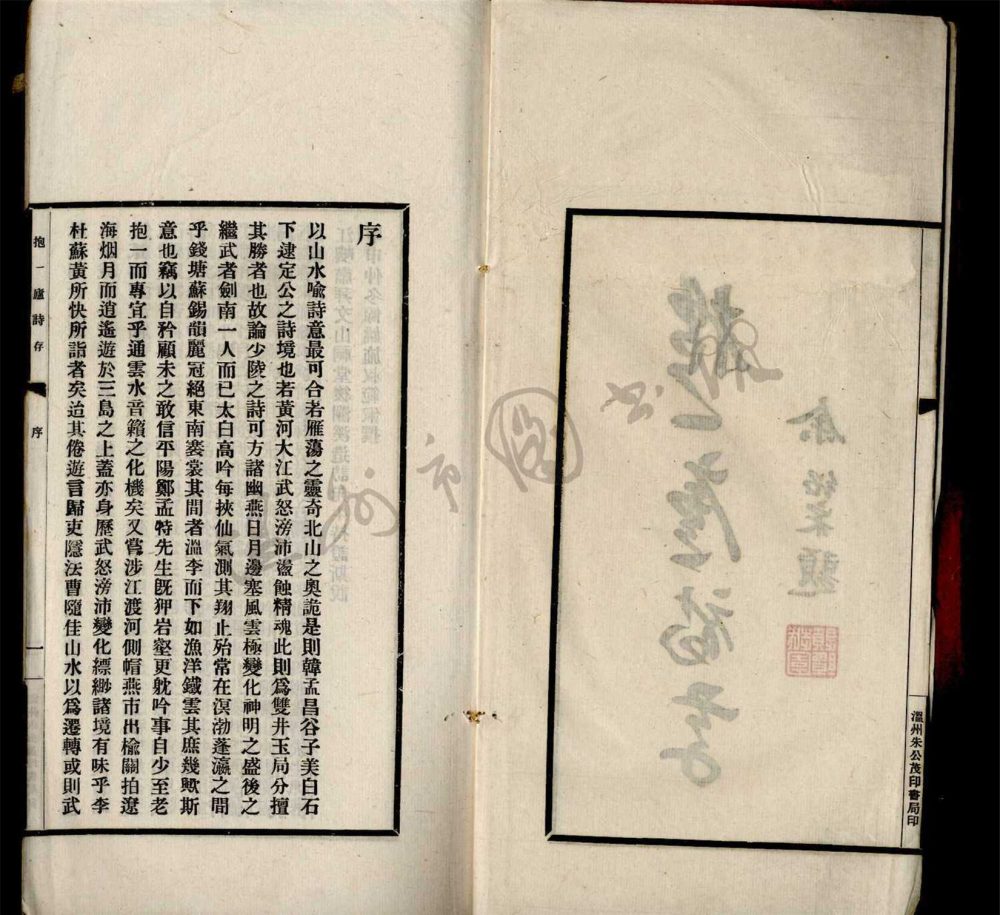 溫州朱公茂印書局印
序
以山水喻詩意最可合若雁蕩之靈奇北山之奧詭是則韓孟昌谷子美白石
下逮定公之詩境也若黃河大江武怒滂沛盪蝕精魂此則爲雙井玉局分擅
其勝者也故論少陵之詩可方諸幽燕日月邊塞風雲極變化神明之盛後之
繼武者劍南一人而已太白高吟每挾仙氣測其翔止殆常在溟渤蓬瀛之間
乎錢塘蘇錫韻麗冠絕東南裘裳其間者溫李而下如漁洋鐵雲其庶幾歟斯
意也竊以自矜顧未之敢信平陽鄭孟特先生旣狎岩壑更躭吟事自少至老
抱一而專宜乎通雲水音籟之化機矣又嘗涉江渡河側帽燕市出楡關拍遼
海烟月而逍遙遊於三島之上蓋亦身歷武怒滂沛變化縹緲諸境有味乎李
杜蘇黃所快所詣者矣迨其倦遊言歸吏隱法曹隨佳山水以爲遷轉或則武
抱一廬詩存
序
一